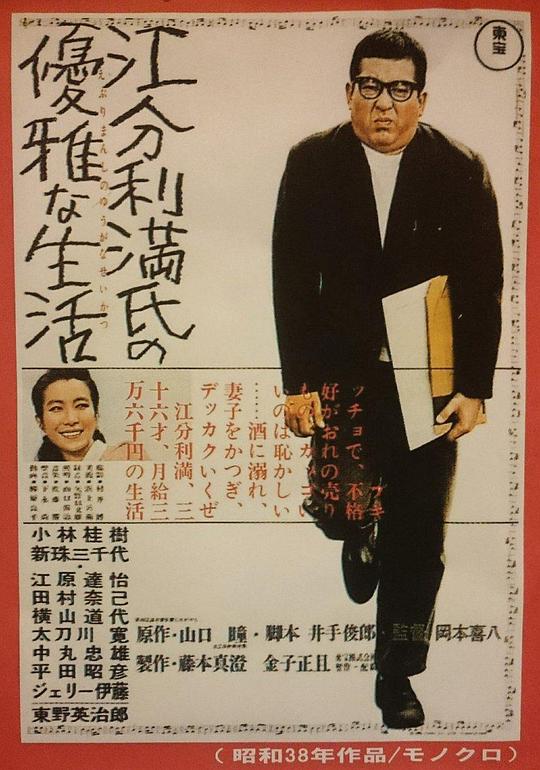 東宝
江分利満氏の
優雅な生活
えぶりまんしのゆうがなせいかつ
ブキ
ッチョで、不格
好がおれの売り
いのは恥かしい
……酒に溺れ、
妻子をかつぎ、
デッカクいくぜ
江分利満、三
十六才、月給三
万六千円の生活
小林桂樹
新珠三千代
江原達怡
田村奈己
横山道代
太刀川寛
中丸忠雄
平田昭彦
ジェリー伊藤
東野英治郎
原作・山口瞳・脚本 井手俊郎・監督 岡本喜八
製作・藤本真澄 金子正且
(昭和38年作品/モノクロ)